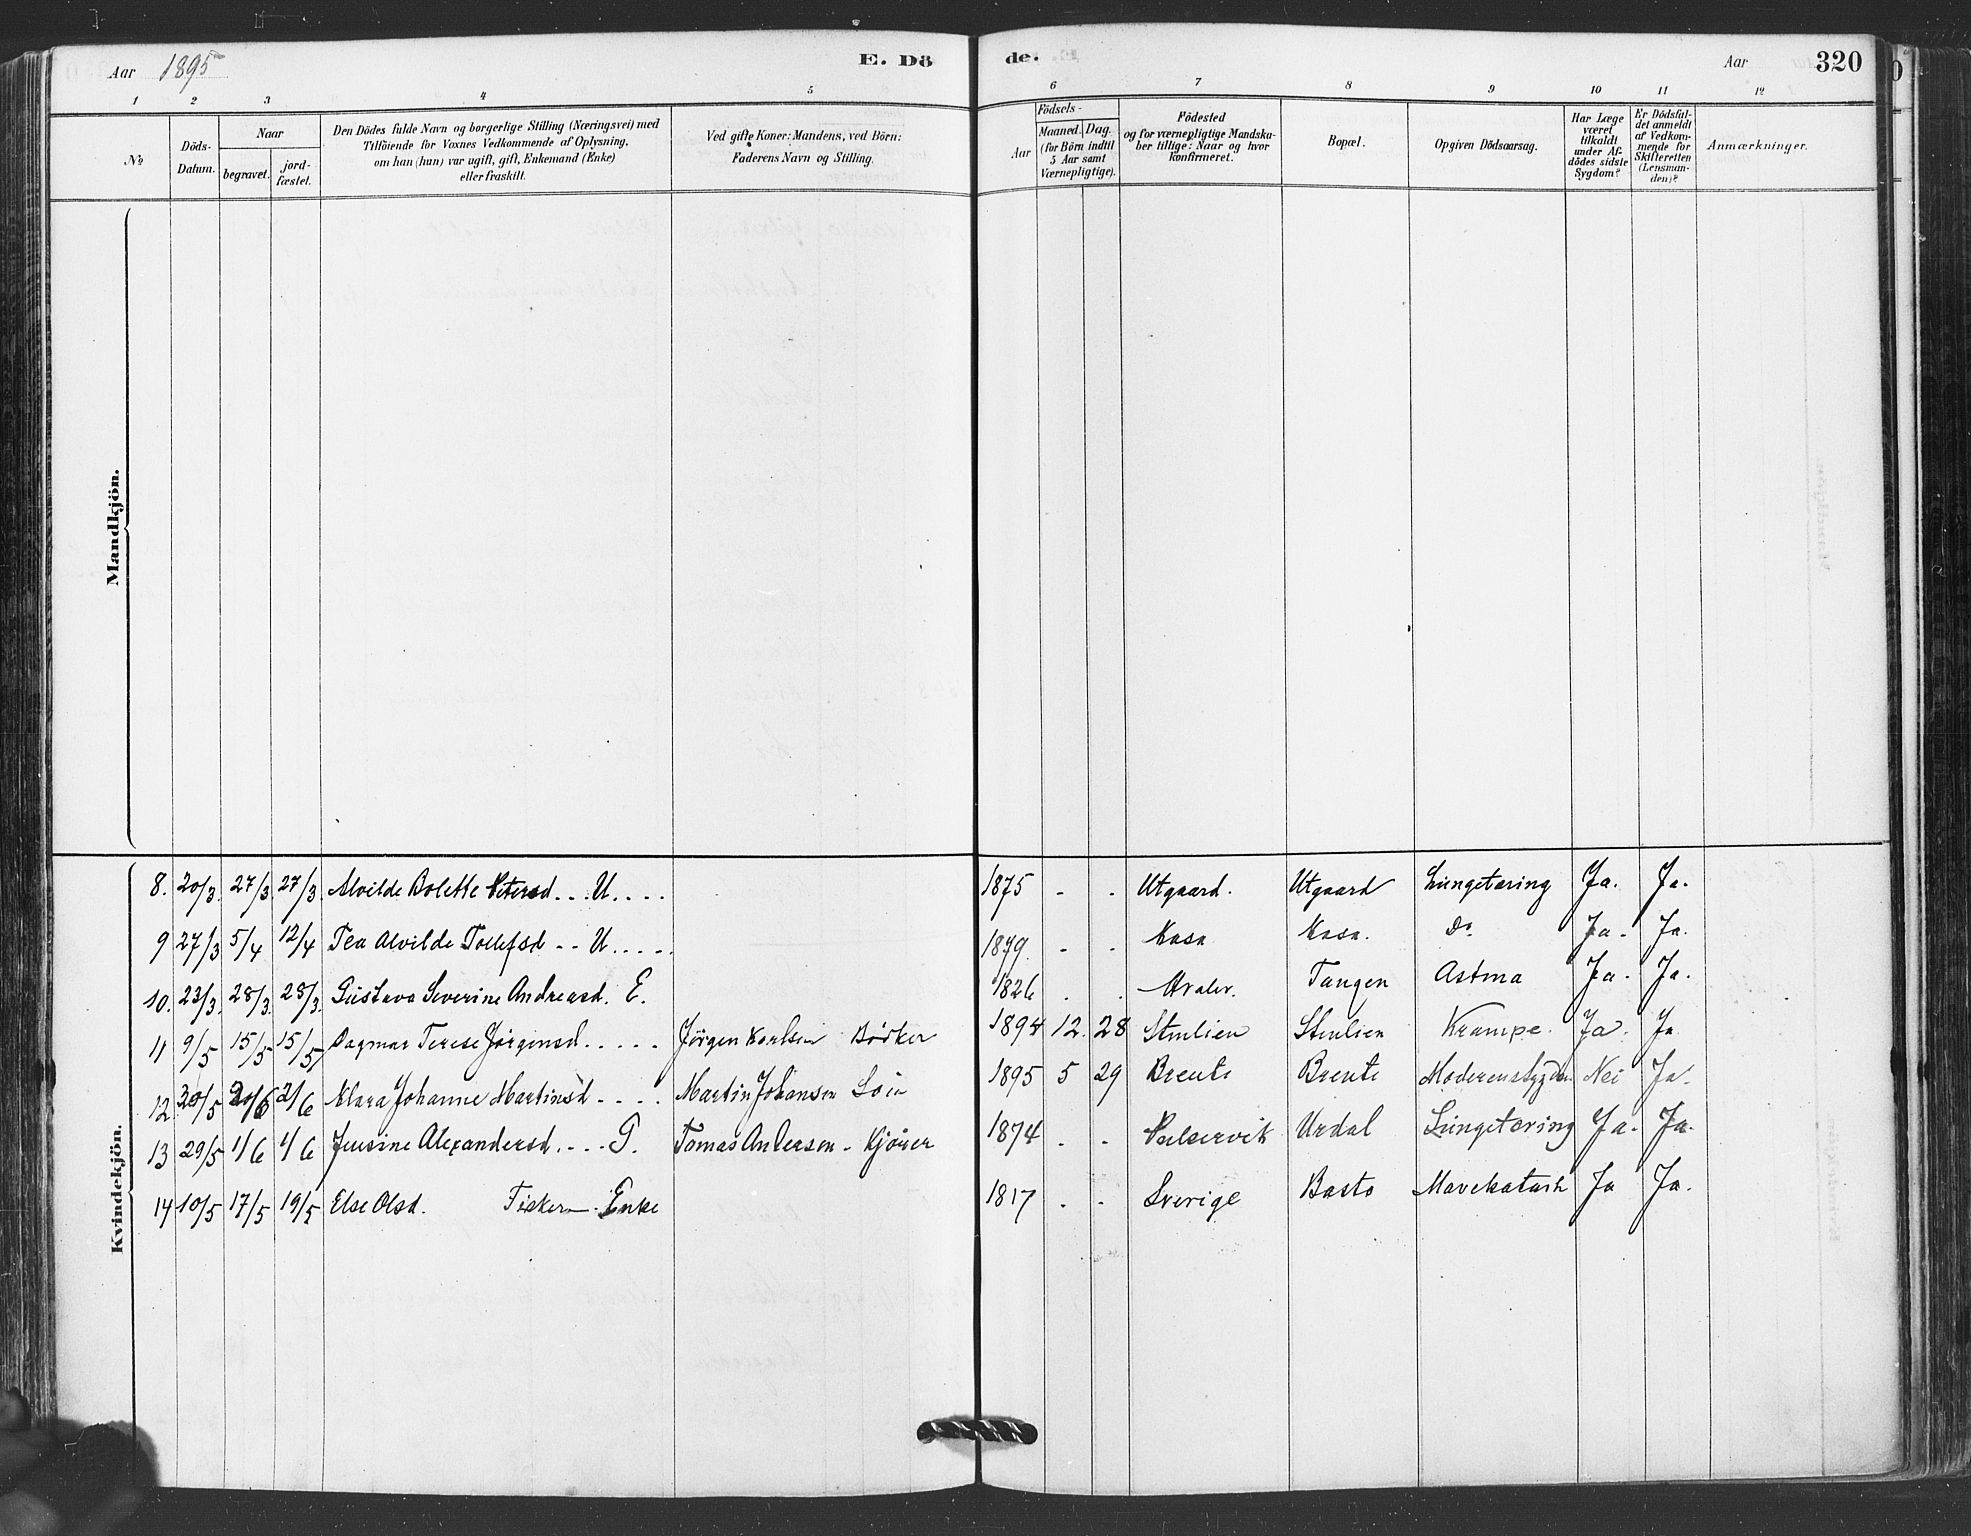 Aar 1895 E. Dö de. Aar 320
1 2 3 4 5 6 7 8 9 10 11 12
№
Döds-
Datum.
Naar
begravet.
jord-
fæstet.
Den Dödes fulde Navn og borgerlige Stilling (Næringsvei) med
Tilföiende for Voxnes Vedkommende af Oplysning,
om han (hun) var ugift, gift, Enkemand (Enke)
eller fraskilt.
Ved gifte Koner: Mandens, ved Börn:
Faderens Navn og Stilling.
Födsels-
Aar
Maaned. Dag.
(for Börn indtil
5 Aar samt
Værnepligtige).
Födested
og for værnepligtige Mandska-
ber tillige: Naar og hvor
konfirmeret.
Bopæl.
Opgiven Dödsaarsag.
Har Læge
været
tilkaldt
under Af-
dödes sidste
Sygdom?
Er Dödsfal-
det anmeldt
af Vedkom-
mende for
Skifteretten
(Lensman-
den)?
Anmærkninger.
Mandkjön.
Kvindekjön.
8. 20/3. 27/3 27/3 Alvilde Bolette Petersd... U.... 1875 - . Utgaard. Utgaard Lungetæring Ja. Ja.
9 27/3 5/4 12/4 Tea Alvilde Tollefsd -- U..... - . Kasa Kasa. Do Ja. Ja.
10. 23/3. 28/3. 28/3. Gustava Severine Andreasd. E. 1826 . . Hvaler. Tangen Astma Ja. Ja.
11 9/5 15/5 15/5 Dagmar Terese Jørgensd..... Jørgen Karlsen Bødker 1894 12. 28 Stenlien Stenlien Krampe. Ja. Ja.
12 20/5 2/6 Klara Johanne Martinsd.... Martin Johansen 1895 5 29 Brente Brente Nei Ja.
13 29/5 1/6 1/6 Alexandersd.... G. Tomas Andersen - 1874 - . Urdal Lungetæring Ja. Ja.
14 10/5 17/5 19/5 Else Olsd. Enke 1817 . . Sverige Basto Mavekatarh Ja Ja.